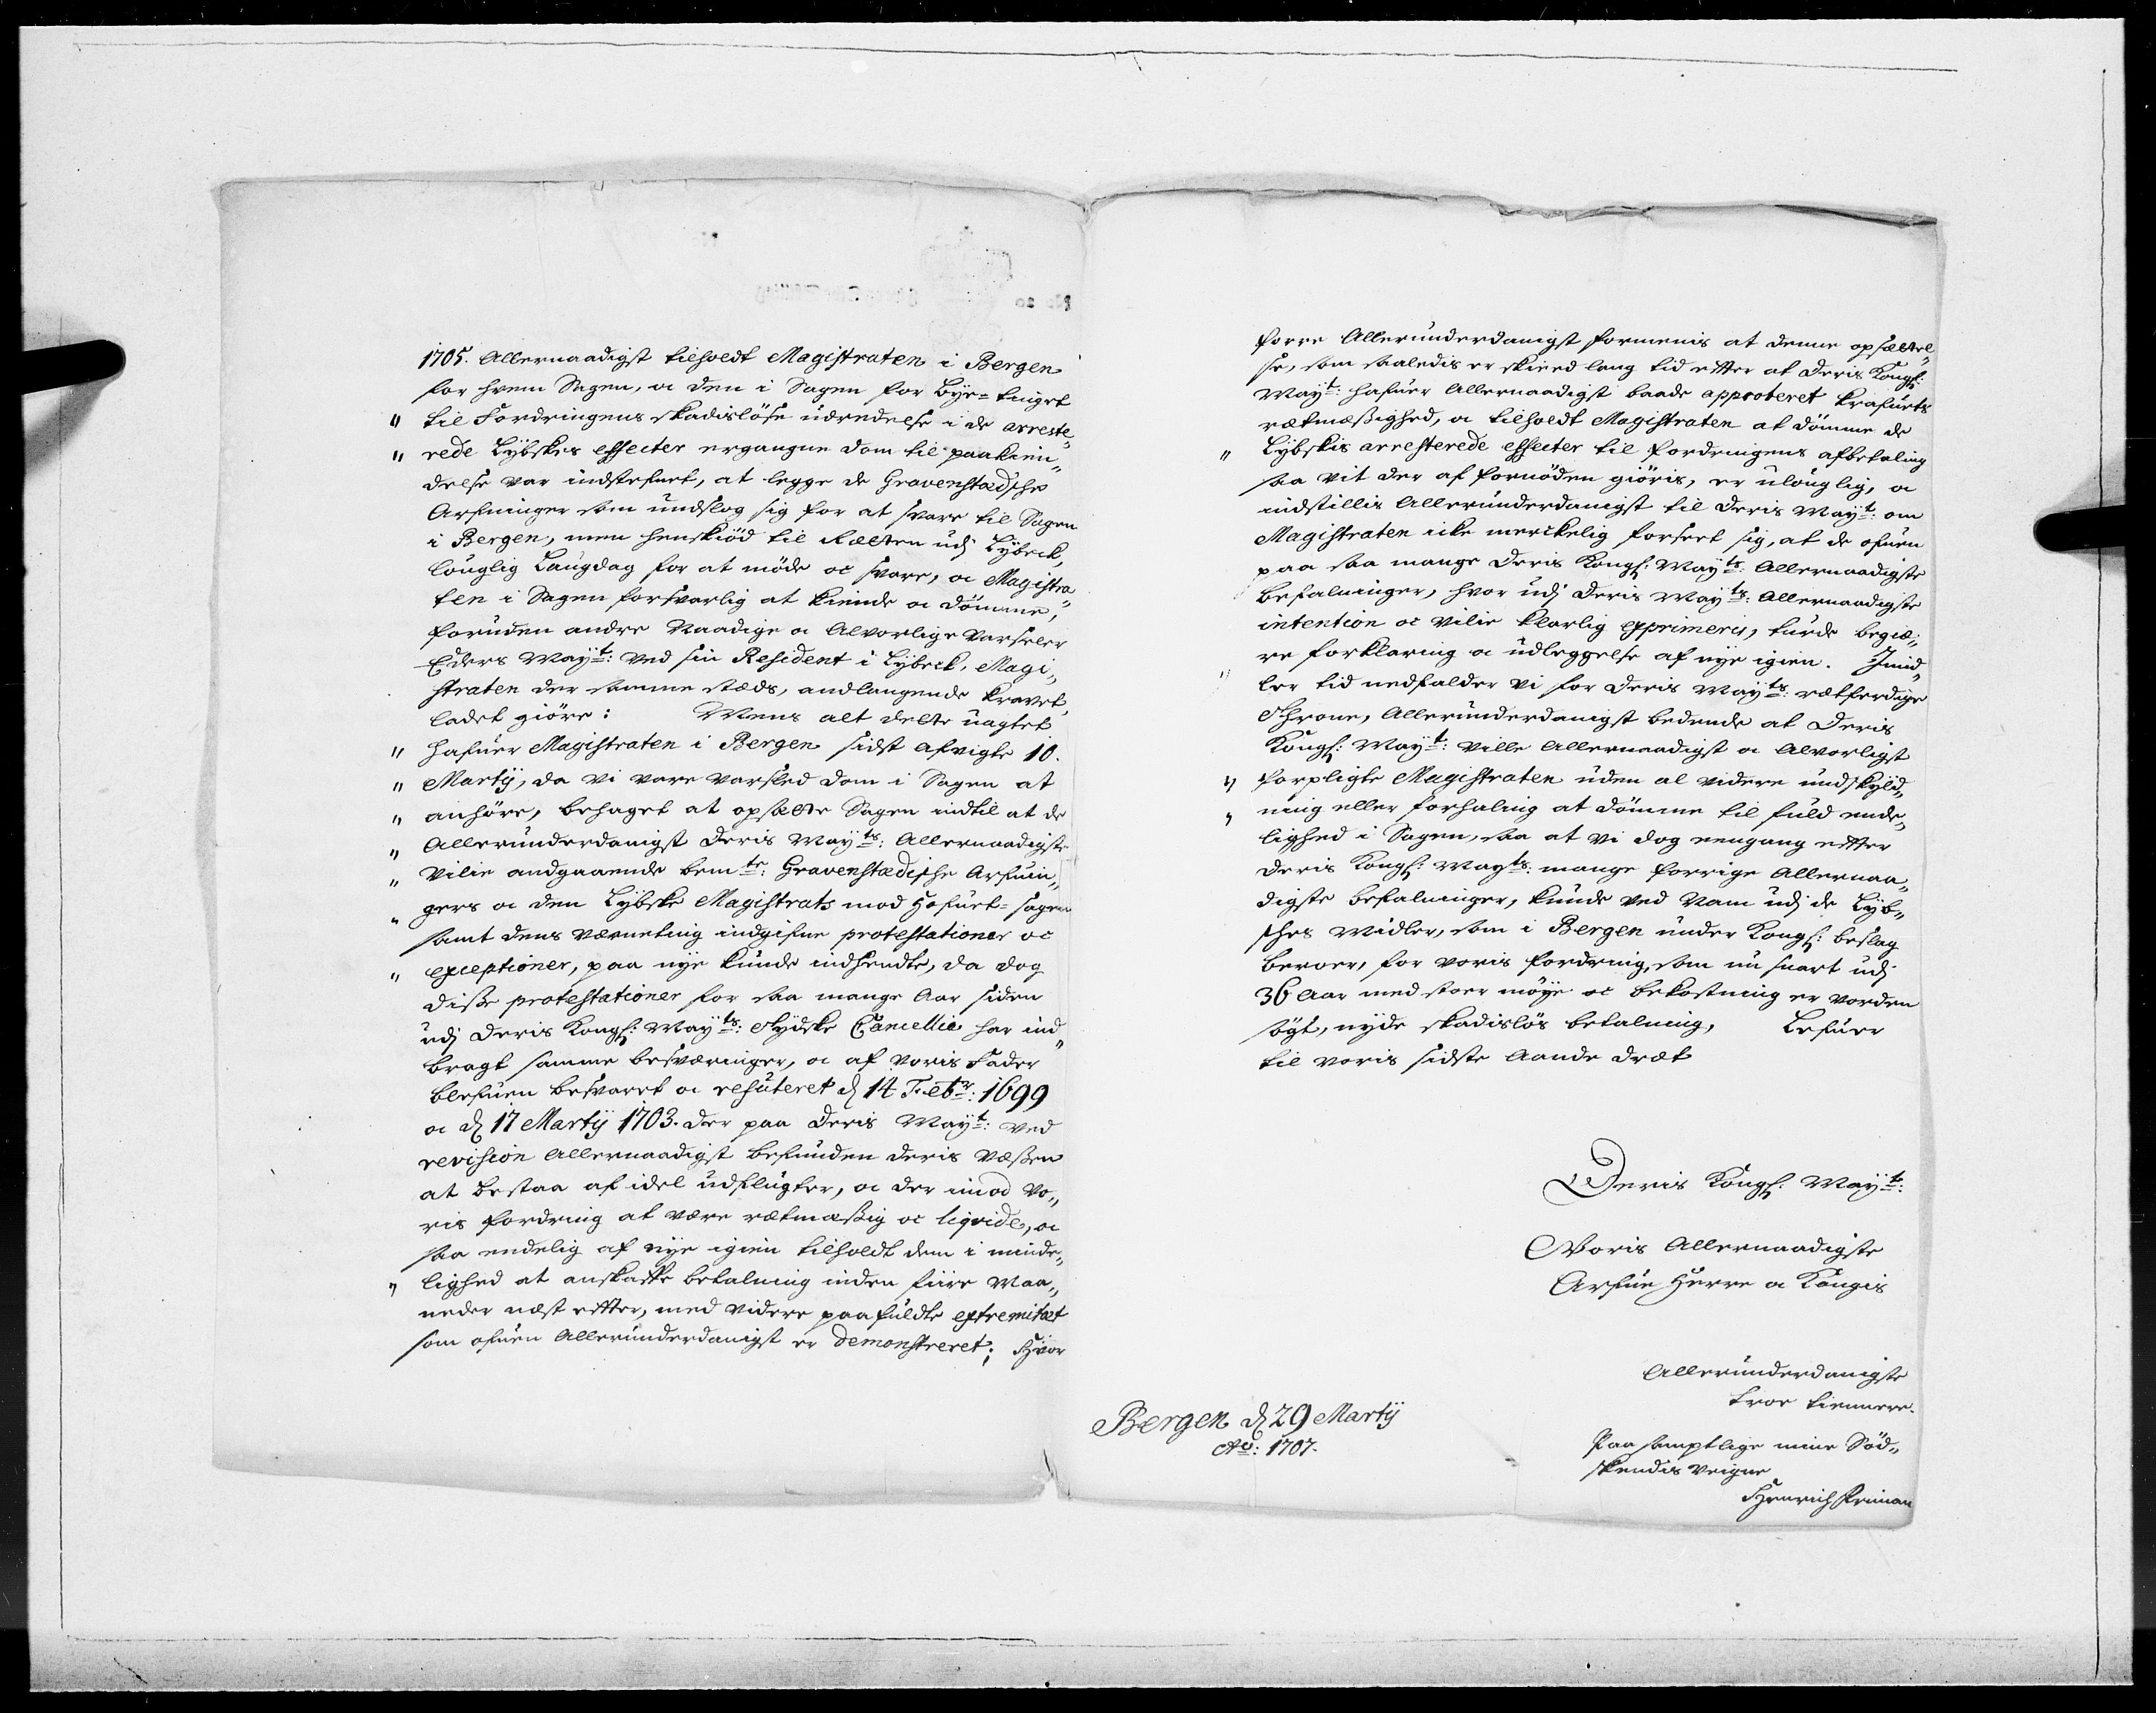 1705. Allernaadigst tilholdt Magistraten i Bergen
for hvem Sagen, oc den i Sagen for Bÿe-tinget
til Fordringens skadisløse udredelse i de arreste„
rede Lÿbskes effecter ergangne dom til paakien„
delse var indstefnet, at legge de Gravenstædsche
Arfuinger som undslog sig for at svare til Sagen
i Bergen, men henskiød til Rætten udj Lÿbeck,
louglig Laugdag for at møde oc svare, oc Magistra„
ten i Sagen forsvarlig at kiende oc dømme,
foruden andre Naadige oc Alvorlige varseler
Eders Maÿt: ved sin Resident i Lÿbeck, Magi„
straten der samme stæds, andlangende kravet,
ladet giøre: Mens alt dette uagtet
hafuer Magistraten i Bergen sidst afvigte 10.
Martÿ, da vi vare varsled dom i Sagen at
anhøre, behaget at opsætte Sagen indtil at de
Allerunderdanigst Deris Maÿts: Allernaadigste
Vilie andgaaende bemte: Gravenstædische Arfuin„
gers oc den Lÿbske Magistrats mod Hofuet-sagen
samt dens værneting indgifne protestationer oc
exceptioner, paa nÿe kunde indhendte, da dog
disse protestationer for saa mange Aar siden
udj Deris Kongl: Maÿts: Tÿdske Cancellie har ind„
bragt samme besværinger, oc af voris Fader
blefuen besvaret oc refuteret d 14 Febr: 1699
oc d 17 Martÿ 1703. der paa Deris Maÿt: ved
revision Allernaadigst befunden deris Væsen
at bestaa af idel udflugter, oc der imod vo„
ris fordring at være rætmæssig oc liqvide, oc
saa endelig af nÿe igien tilholdt dem i minde„
lighed at anskaffe betalning inden fiire Maa„
neder næst effter, med videre paafuldte extremitæt
som ofuen Allerunderdanigst er demonstreret; Hvor
forre Allerunderdanigst formenis at denne opsættel„
se, som saaledis er skieed lang tid effter at Deris Kongl:
Maÿt: hafuer Allernaadigst baade approberet krafuets
rætmæssighed, oc tilholdt Magistraten at dømme de
Lÿbskis arresterede effecter til fordringens afbetaling
saa vit der af fornøden giøris, er ulouglig, oc
indstillis Allerunderdanigst til Deris Maÿt: om
Magistraten icke merckelig forseet sig, at de ofuen
paa saa mange Deris Kongl: Maÿts: Allernaadigste
befalninger, hvor udj Deris Maÿts: Allernaadigste
intention oc vilie klarlig exprimeris, turde begiæ„
re forklaring oc udleggelse af nÿe igien. Imid„
ler tid nedfalder vi for Deris Maÿts: rætferdige
Throne, Allerunderdanigst bedende at Deris
Kongl: Maÿt: ville Allernaadigst oc Alvorligst
forpligte Magistraten uden al videre undskyld„
ning eller forhaling at dømme til fuld ende„
lighed i Sagen, saa at vi dog eengang effter
Deris Kongl: Maÿts: mange forrige Allernaa„
digste befalninger, kunde ved Nam udj de Lÿb„
sches Midler, som i Bergen under Kongl: beslag
beroer, for voris fordring, som nu snart udj
36 Aar med stoer møÿe oc bekostning er vorden
søgt, nÿde skadisløs betalning, Lefuer
til voris sidste Aande dræt
Deris Kongl: Maÿt:
Voris Allernaadigste
Arfue Herre oc Kongis
Allerunderdanigste
troe tiennere.
Paa samptlige mine Sød„
skendis veigne
Henrich
Bergen d 29 Martÿ
Ao: 1707.